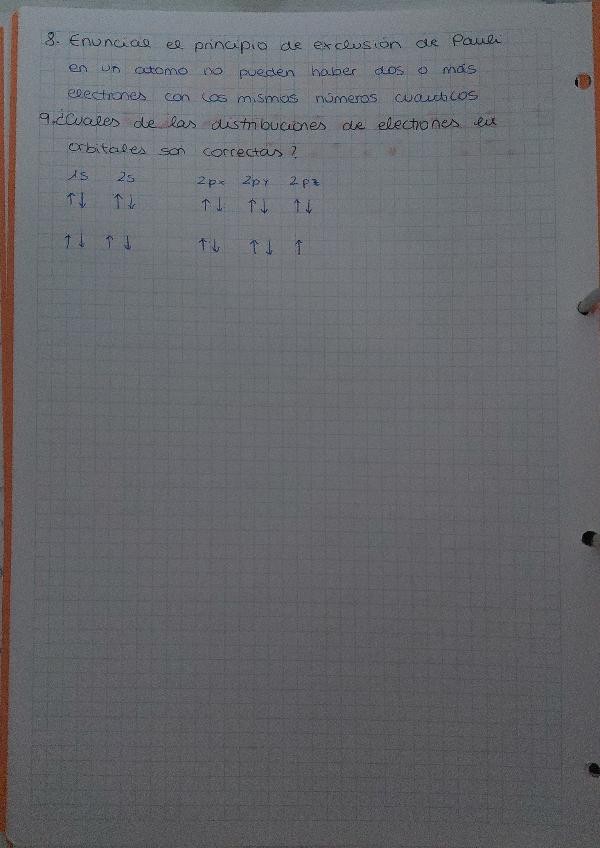 8. Enunciar el principio de exclusión de Pauli
en un atomo no pueden haber dos o más
electrones con los mismos números cuanticos
9.¿Cuales de las distribuciones de electrones en
orbitales son correctas?
1s 2s 2px 2py 2pz
↑↓ ↑↓ ↑↓ ↑↓ ↑↓
↑↓ ↑↓ ↑↓ ↑↓ ↑